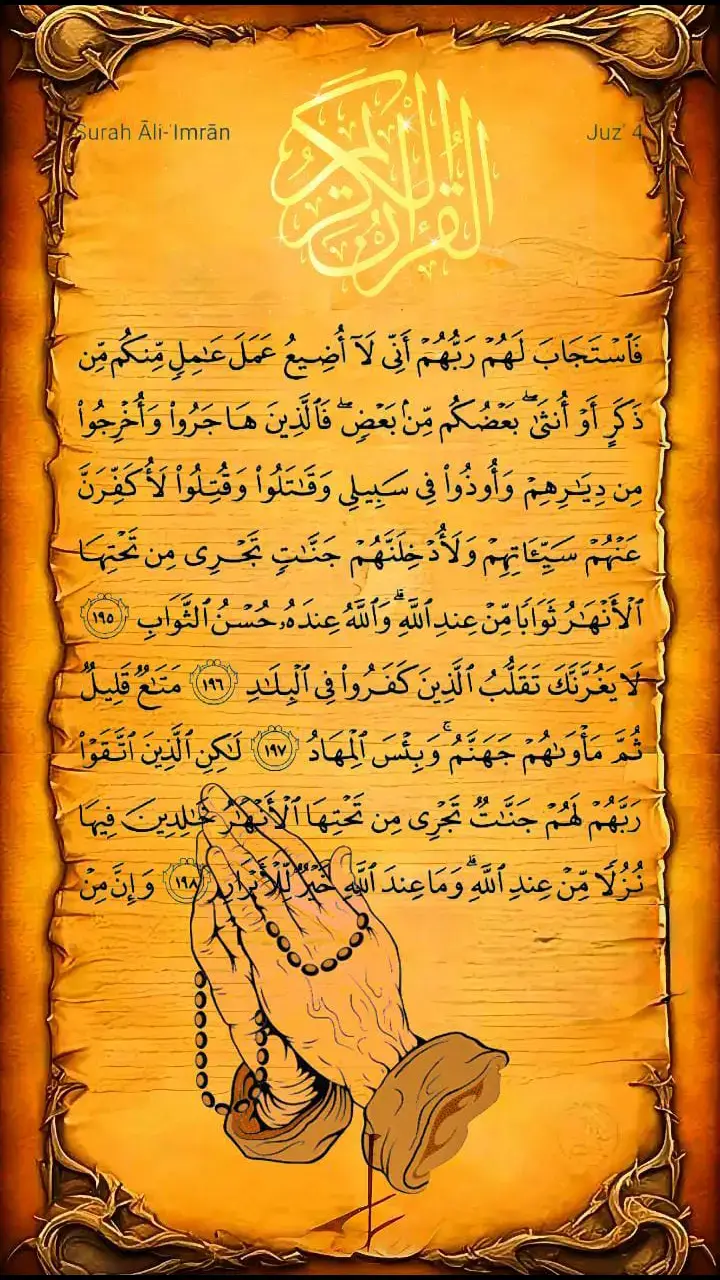 Surah Āli-ʿImrān
Juzʾ 4
القرءان الكريم
فَٱسْتَجَابَ لَهُمْ رَبُّهُمْ أَنِّى لَآ أُضِيعُ عَمَلَ عَـٰمِلٍ مِّنكُم مِّن
ذَكَرٍ أَوْ أُنثَىٰ ۖ بَعْضُكُم مِّنۢ بَعْضٍ ۖ فَٱلَّذِينَ هَاجَرُوا۟ وَأُخْرِجُوا۟
مِن دِيَـٰرِهِمْ وَأُوذُوا۟ فِى سَبِيلِى وَقَـٰتَلُوا۟ وَقُتِلُوا۟ لَأُكَفِّرَنَّ
عَنْهُمْ سَيِّـَٔاتِهِمْ وَلَأُدْخِلَنَّهُمْ جَنَّـٰتٍ تَجْرِى مِن تَحْتِهَا
ٱلْأَنْهَـٰرُ ثَوَابًا مِّنْ عِندِ ٱللَّهِ ۗ وَٱللَّهُ عِندَهُۥ حُسْنُ ٱلثَّوَابِ ١٩٥
لَا يَغُرَّنَّكَ تَقَلُّبُ ٱلَّذِينَ كَفَرُوا۟ فِى ٱلْبِلَـٰدِ ١٩٦ مَتَـٰعٌ قَلِيلٌ
ثُمَّ مَأْوَىٰهُمْ جَهَنَّمُ ۚ وَبِئْسَ ٱلْمِهَادُ ١٩٧ لَـٰكِنِ ٱلَّذِينَ ٱتَّقَوْا۟
رَبَّهُمْ لَهُمْ جَنَّـٰتٌ تَجْرِى مِن تَحْتِهَا ٱلْأَنْهَـٰرُ خَـٰلِدِينَ فِيهَا
نُزُلًا مِّنْ عِندِ ٱللَّهِ ۗ وَمَا عِندَ ٱللَّهِ خَيْرٌ لِّلْأَبْرَارِ ١٩٨ وَإِنَّ مِنْ